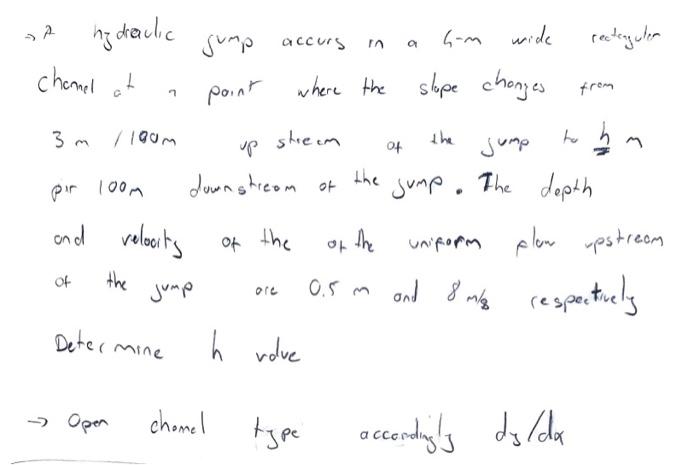 → A hydraulic jump accurs in a 4-m wide rectangular
Channel at a point where the slope changes from
3 m /100m up stream of the jump to h m
per 100m downstream of the jump. The depth
and velocity of the of the uniform flow upstream
of the jump are 0.5 m and 8 m/s respectively
Determine h value
→ Open channel type accordingly dy/dx